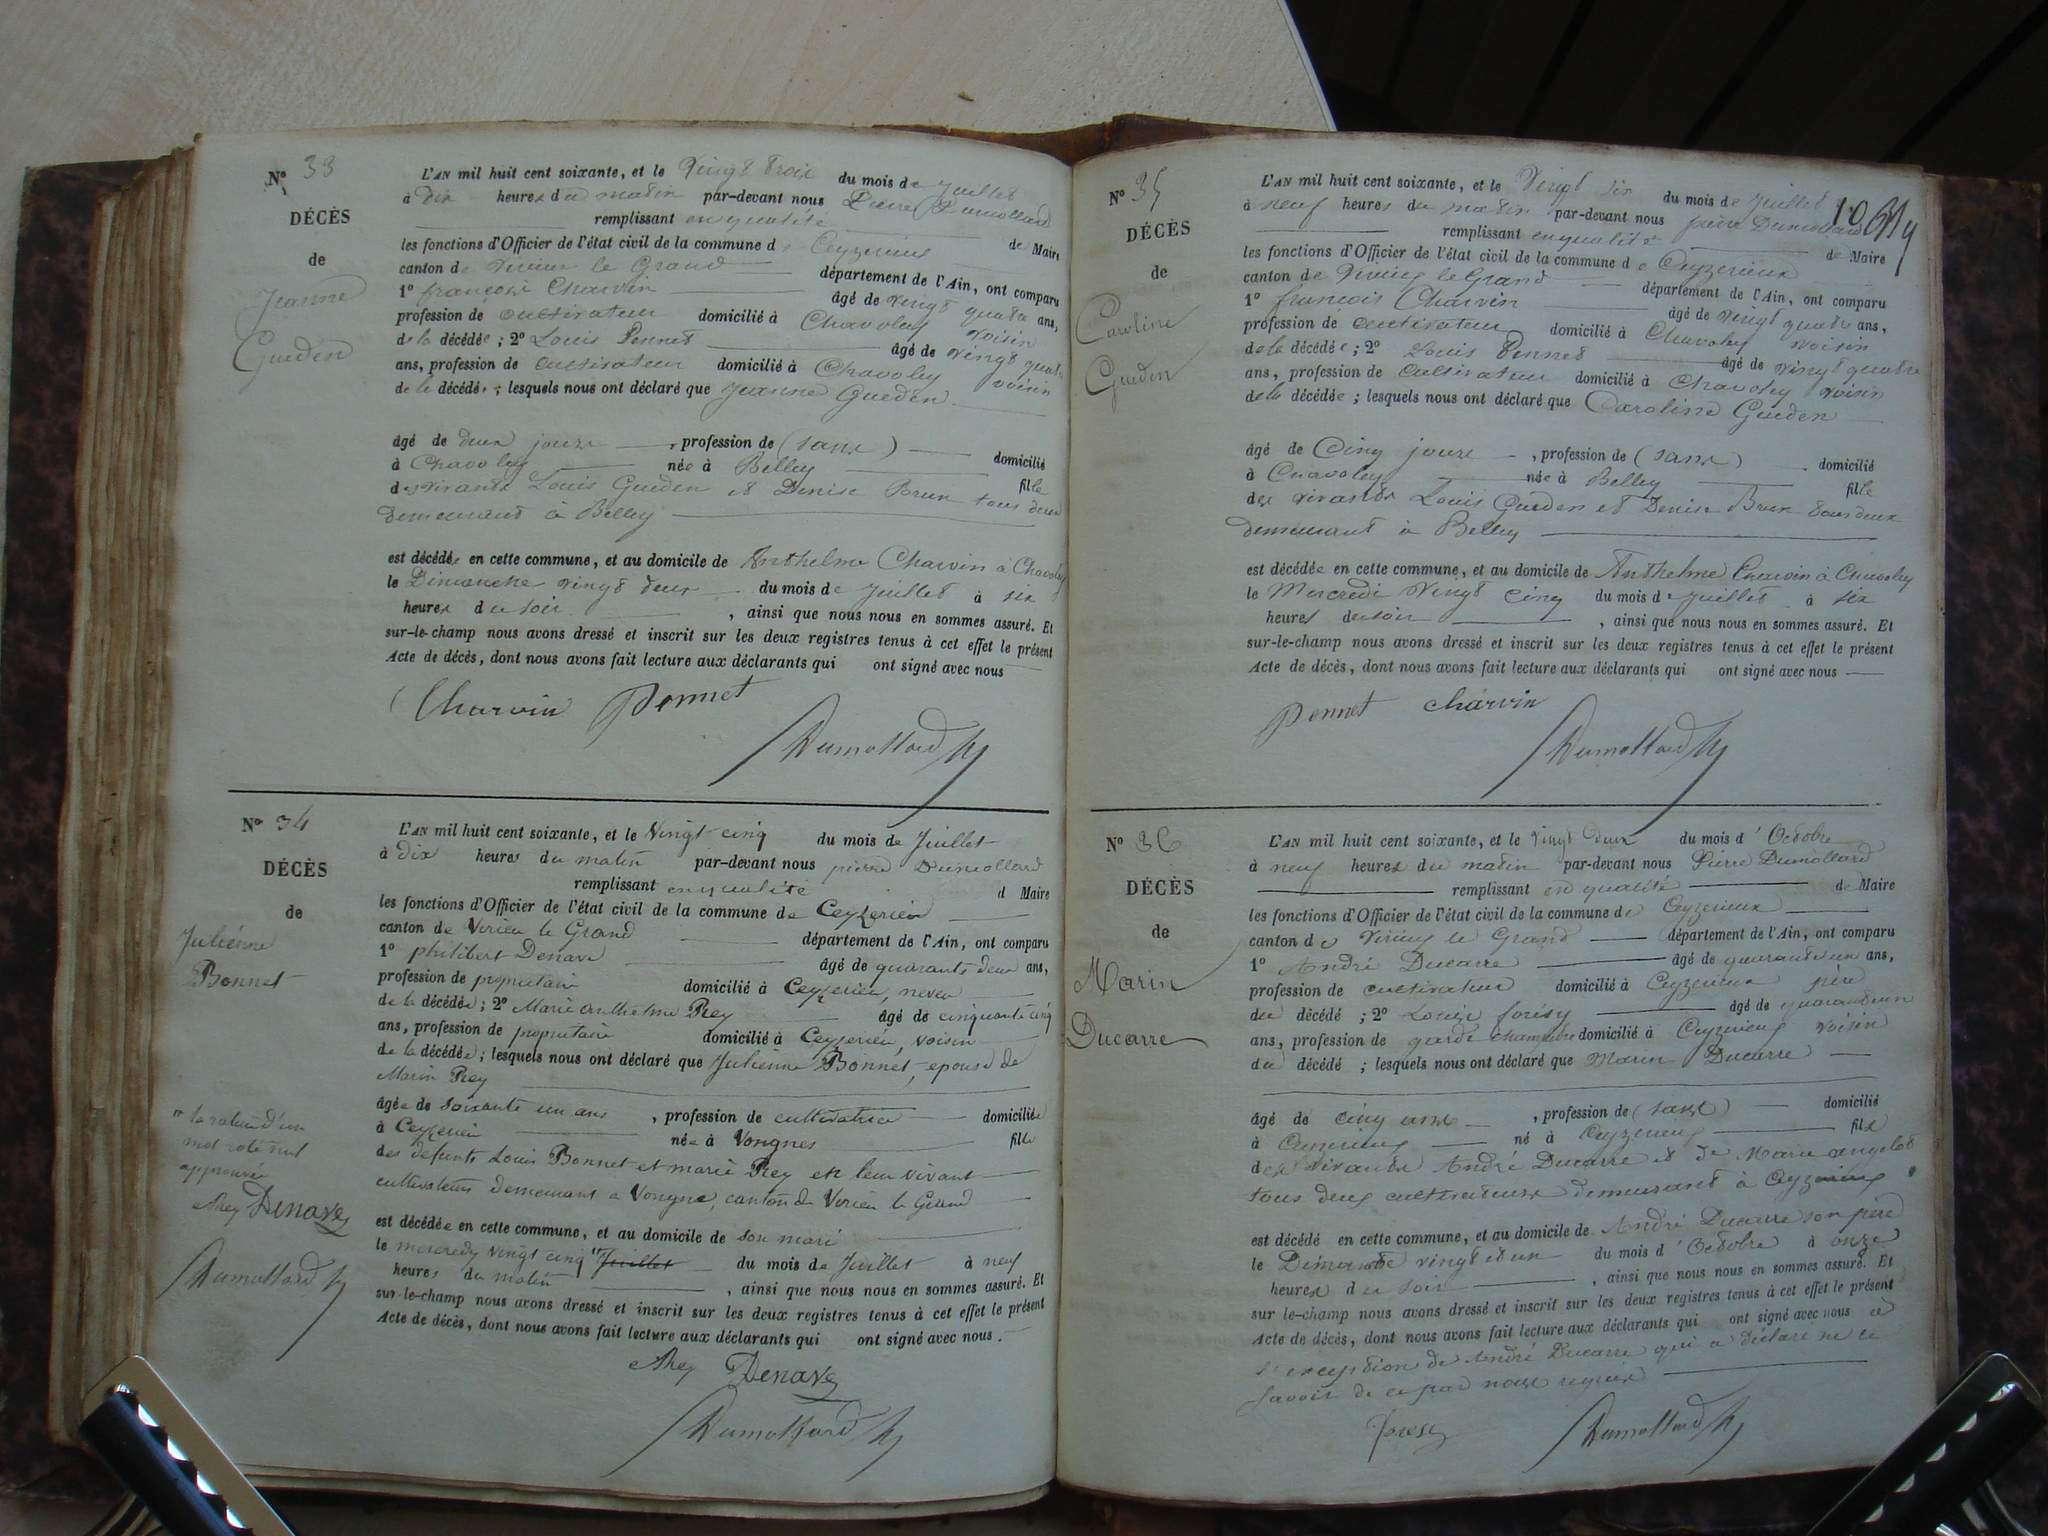 Nº 33
DÉCÈS
de
Jeanne
Gueden
L'AN mil huit cent soixante, et le Vingt trois du mois de Juillet
à dix heures du matin par-devant nous Pierre Dumollard
remplissant en qualité de Maire
les fonctions d'Officier de l'état civil de la commune de Ceyzerieux
canton de Virieu le Grand département de l'Ain, ont comparu
1º françois Charvin âgé de vingt quatre ans,
profession de cultivateur domicilié à Chavoley voisin
de la décédée ; 2º Louis Pennet âgé de vingt quatre
ans, profession de cultivateur domicilié à Chavoley voisin
de la décédée ; lesquels nous ont déclaré que Jeanne Gueden
âgé de deux jours , profession de (sans) domicilié
à Chavoley née à Belley fille
des vivants Louis Gueden et Denise Brun tous deux
demeurant à Belley
est décédée en cette commune, et au domicile de Anthelme Charvin à Chavoley
le Dimanche vingt deux du mois de Juillet à six
heures du soir , ainsi que nous nous en sommes assuré. Et
sur-le-champ nous avons dressé et inscrit sur les deux registres tenus à cet effet le présent
Acte de décès, dont nous avons fait lecture aux déclarants qui ont signé avec nous
Charvin Pennet
Dumollard
Nº 34
DÉCÈS
de
Juliénne
Bonnet
L'AN mil huit cent soixante, et le Vingt-cinq du mois de Juillet
à dix heures du matin par-devant nous pierre Dumollard
remplissant en qualité d Maire
les fonctions d'Officier de l'état civil de la commune de Ceyzerieu
canton de Virieu le Grand département de l'Ain, ont comparu
1º philibert Denave âgé de quarante deux ans,
profession de propriétaire domicilié à Ceyzerieu, neveu
de la décédée ; 2º Marie anthelme Rey âgé de cinquante cinq
ans, profession de propriétaire domicilié à Ceyzerieu, voisin
de la décédée ; lesquels nous ont déclaré que Julienne Bonnet, epouse de
Marin Rey
âgée de soixante un ans , profession de cultivatrice domiciliée
à Ceyzerieu née à Vongnes fille
des défunts Louis Bonnet et marie Rey en leur vivant
cultivateurs demeurant a Vongnes, canton de Virieu le Grand
est décédée en cette commune, et au domicile de son mari
le mercredy vingt cinq " Juillet du mois de Juillet à neuf
heures du matin , ainsi que nous nous en sommes assuré. Et
sur-le-champ nous avons dressé et inscrit sur les deux registres tenus à cet effet le présent
Acte de décès, dont nous avons fait lecture aux déclarants qui ont signé avec nous.
" la rature d'un
mot rayé nul
approuvée
Rey Denave
Dumollard
Rey Denave
Dumollard
Nº 35
DÉCÈS
de
Caroline
Gueden
L'AN mil huit cent soixante, et le Vingt six du mois de Juillet
à neuf heures du matin par-devant nous pierre Dumollard
remplissant en qualité de Maire
les fonctions d'Officier de l'état civil de la commune de Ceyzerieux
canton de Virieu le Grand département de l'Ain, ont comparu
1º francois Charvin âgé de vingt quatre ans,
profession de cultivateur domicilié à Chavoley voisin
de la décédée ; 2º Louis Pennet âgé de vingt quatre
ans, profession de cultivateur domicilié à Chavoley voisin
de la décédée ; lesquels nous ont déclaré que Caroline Gueden
âgé de Cinq jours , profession de (sans) domicilié
à Chavoley née à Belley fille
des vivants Louis Gueden et Denise Brun tous deux
demeurant à Belley
est décédée en cette commune, et au domicile de Anthelme Charvin à Chavoley
le Mercredi Vingt cinq du mois de Juillet à six
heures du soir , ainsi que nous nous en sommes assuré. Et
sur-le-champ nous avons dressé et inscrit sur les deux registres tenus à cet effet le présent
Acte de décès, dont nous avons fait lecture aux déclarants qui ont signé avec nous
Pennet Charvin
Dumollard
Nº 36
DÉCÈS
de
Marin
Ducarre
L'AN mil huit cent soixante, et le vingt deux du mois d'Octobre
à neuf heures du matin par-devant nous Pierre Dumollard
remplissant en qualité de Maire
les fonctions d'Officier de l'état civil de la commune de Ceyzerieux
canton de Virieu le Grand département de l'Ain, ont comparu
1º André Ducarre âgé de quarante un ans,
profession de cultivateur domicilié à Ceyzerieux père
du décédé ; 2º Louis forésy âgé de quarante un
ans, profession de garde champêtre domicilié à Ceyzerieux voisin
du décédé ; lesquels nous ont déclaré que Marin Ducarre
âgé de cinq ans , profession de (sans) domicilié
à Ceyzerieux né à Ceyzerieux fils
des vivants André Ducarre et de Marie angelot
tous deux cultivateurs demeurant à Ceyzerieux
est décédé en cette commune, et au domicile de André Ducarre son père
le Dimanche vingt et un du mois d'Octobre à onze
heures du soir , ainsi que nous nous en sommes assuré. Et
sur le-champ nous avons dressé et inscrit sur les deux registres tenus à cet effet le présent
Acte de décès, dont nous avons fait lecture aux déclarants qui ont signé avec nous à
l'exception de André Ducarre qui a déclaré ne le
savoir de ce par nous requis
Dumollard